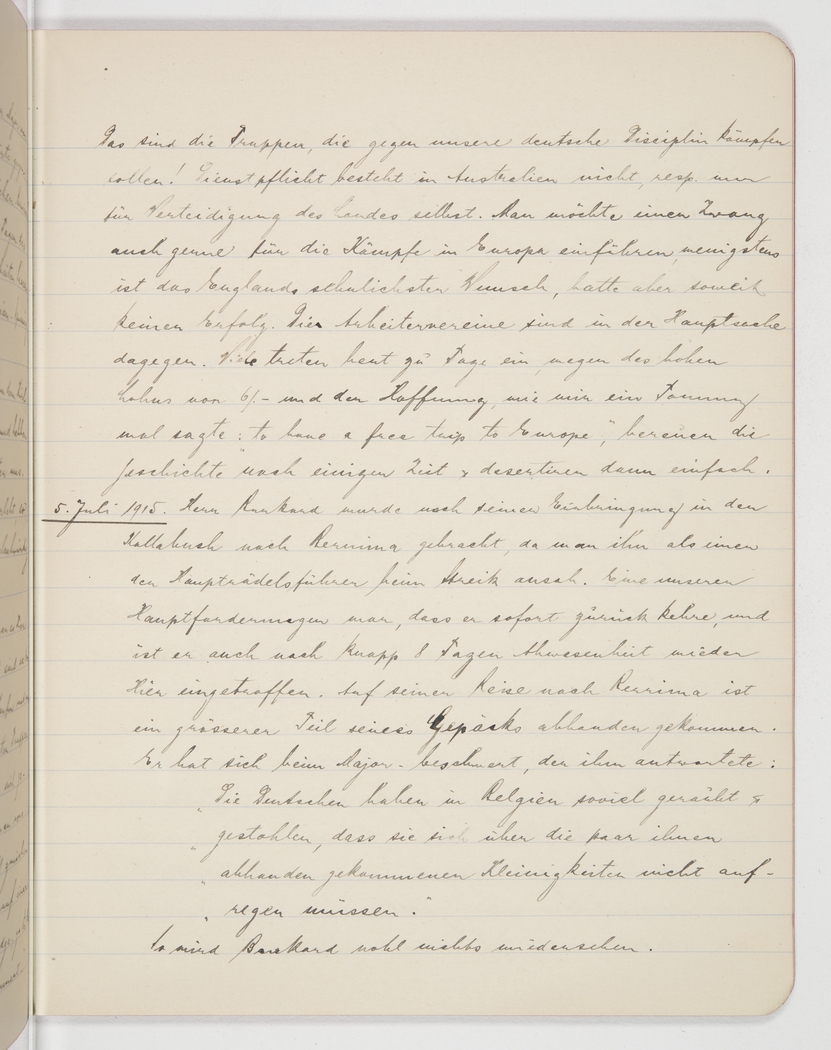 Das sind die Truppen, die gegen unsere deutsche Disciplin kämpfen
sollen! Dienstpflicht besteht in Australien nicht, resp. nur
für Verteidigung des Landes selbst. Man möchte einen Zwang
auch gerne für die Kämpfe in Europa einführen, wenigstens
ist das Englands sehnlichster Wunsch, hatte aber soweit
keinen Erfolg. Die Arbeitervereine sind in der Hauptsache
dagegen. Viele treten heut zu Tage ein, wegen des hohen
Lohns von 6/- und der Hoffnung, wie mir ein Tommy
mal sagte: "to have a free trip to Europe", bereuen die
Geschichte nach einiger Zeit & desertiren dann einfach.
5. Juli 1915. Herr Burkard wurde nach seiner Einbringung in den
Kottabush nach Berrima gebracht, da man ihn als einen
der Haupträdelsführer beim Streik ansah. Eine unserer
Hauptforderungen war, dass er sofort zurück kehre, und
ist er auch nach knapp 8 Tagen Abwesenheit wieder
hier eingetroffen. Auf seiner Reise nach Berrima ist
ein grösserer Teil seines Gepäcks abhanden gekommen.
Er hat sich beim Major beschwert, der ihm antwortete:
"Die Deutschen haben in Belgien soviel geraubt &
" gestohlen, dass sie sich über die paar ihnen
" abhanden gekommenen Kleinigkeiten nicht auf-
" regen müssen."
So wird Burkard wohl nichts wiedersehen.